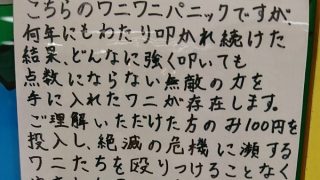 こちらのワニワニパニックですが、
何年にもわたり叩かれ続けた
結果、どんなに強く叩いても
点数にならない無敵の力を
手に入れたワニが存在します。
ご理解いただけた方のみ100円を
投入し、絶滅の危機に瀕する
ワニたちを殴りつけることなく